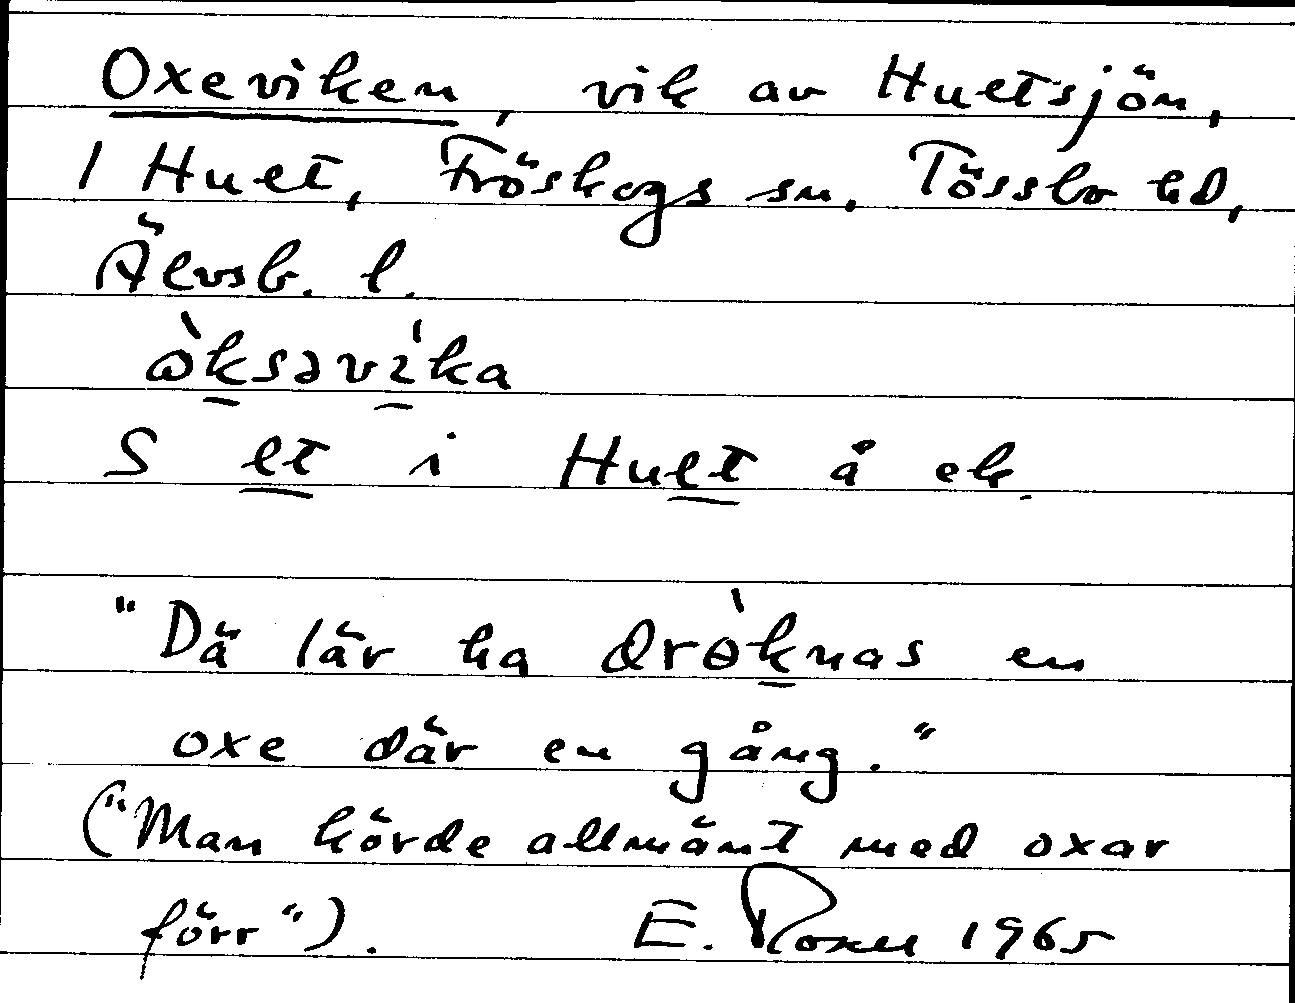 Oxeviken, vik av Huetsjön,
i Huet, Fröskogs sn, Tössbo hd,
Älvsb. l.
ɷ̀ksəvi̍ka
S et i Huet å ek.
"Dä lär ha drɵ̀knas en
oxe där en gång."
("Man körde allmänt med oxar
förr"). E. 1965